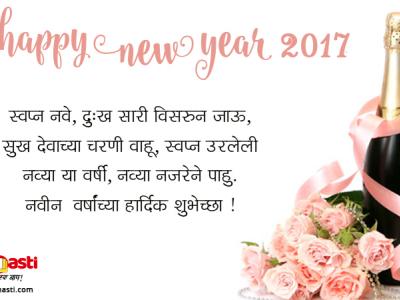 happy new year 2017
स्वप्न नवे, दुःख सारी विसरुन जाऊ,
सुख देवाच्या चरणी वाहू, स्वप्न उरलेली
नव्या या वर्षी, नव्या नजरेने पाहु.
नवीन वर्षांच्या हार्दिक शुभेच्छा !
asti
asti.com